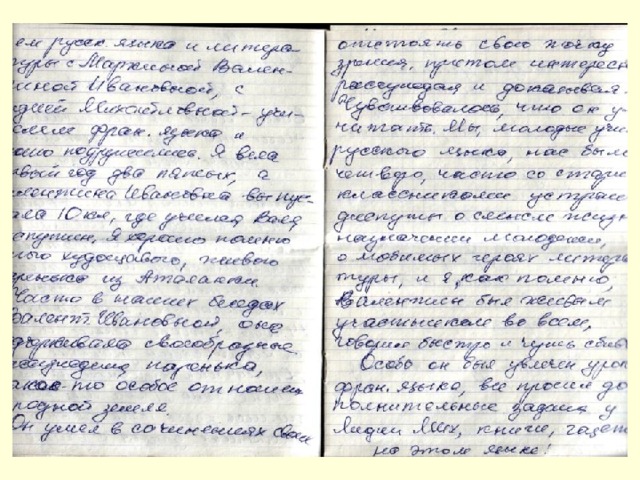 ем русск. языка и литера-
туры с Мартыновой Вален-
тиной Ивановной, с
Лидией Михайловной - учи-
телем фран. языка и
подружились. Я вела
год два пятых, а
Валентина Ивановна выпус-
кала 10 кл, где учился Валя
Я хорошо помню
этого худощавого, живого
паренька из Аталанки
Часто в наших беседах
Валент. Ивановной, она
своеобразные
паренька,
какое то особое отношен
к родной земле.
Он умел в сочинениях свои
отстоять свою точку
зрения, притом интересно
рассуждая и доказывая.
Чувствовалось, что он у-
читать. Мы, молодые учи
русского языка, нас было
четверо, часто со старш
классниками устраив
диспуты о смысле жизни
назначении молодежи,
о любимых героях литера
туры, и я, как помню,
Валентин был живым
участником во всем,
говорил быстро и чуть сбив
Особо он был увлечен урок
фран. языка, все просил до-
полнительные задания у
Лидии Мих, книги, газеты
на этом языке!